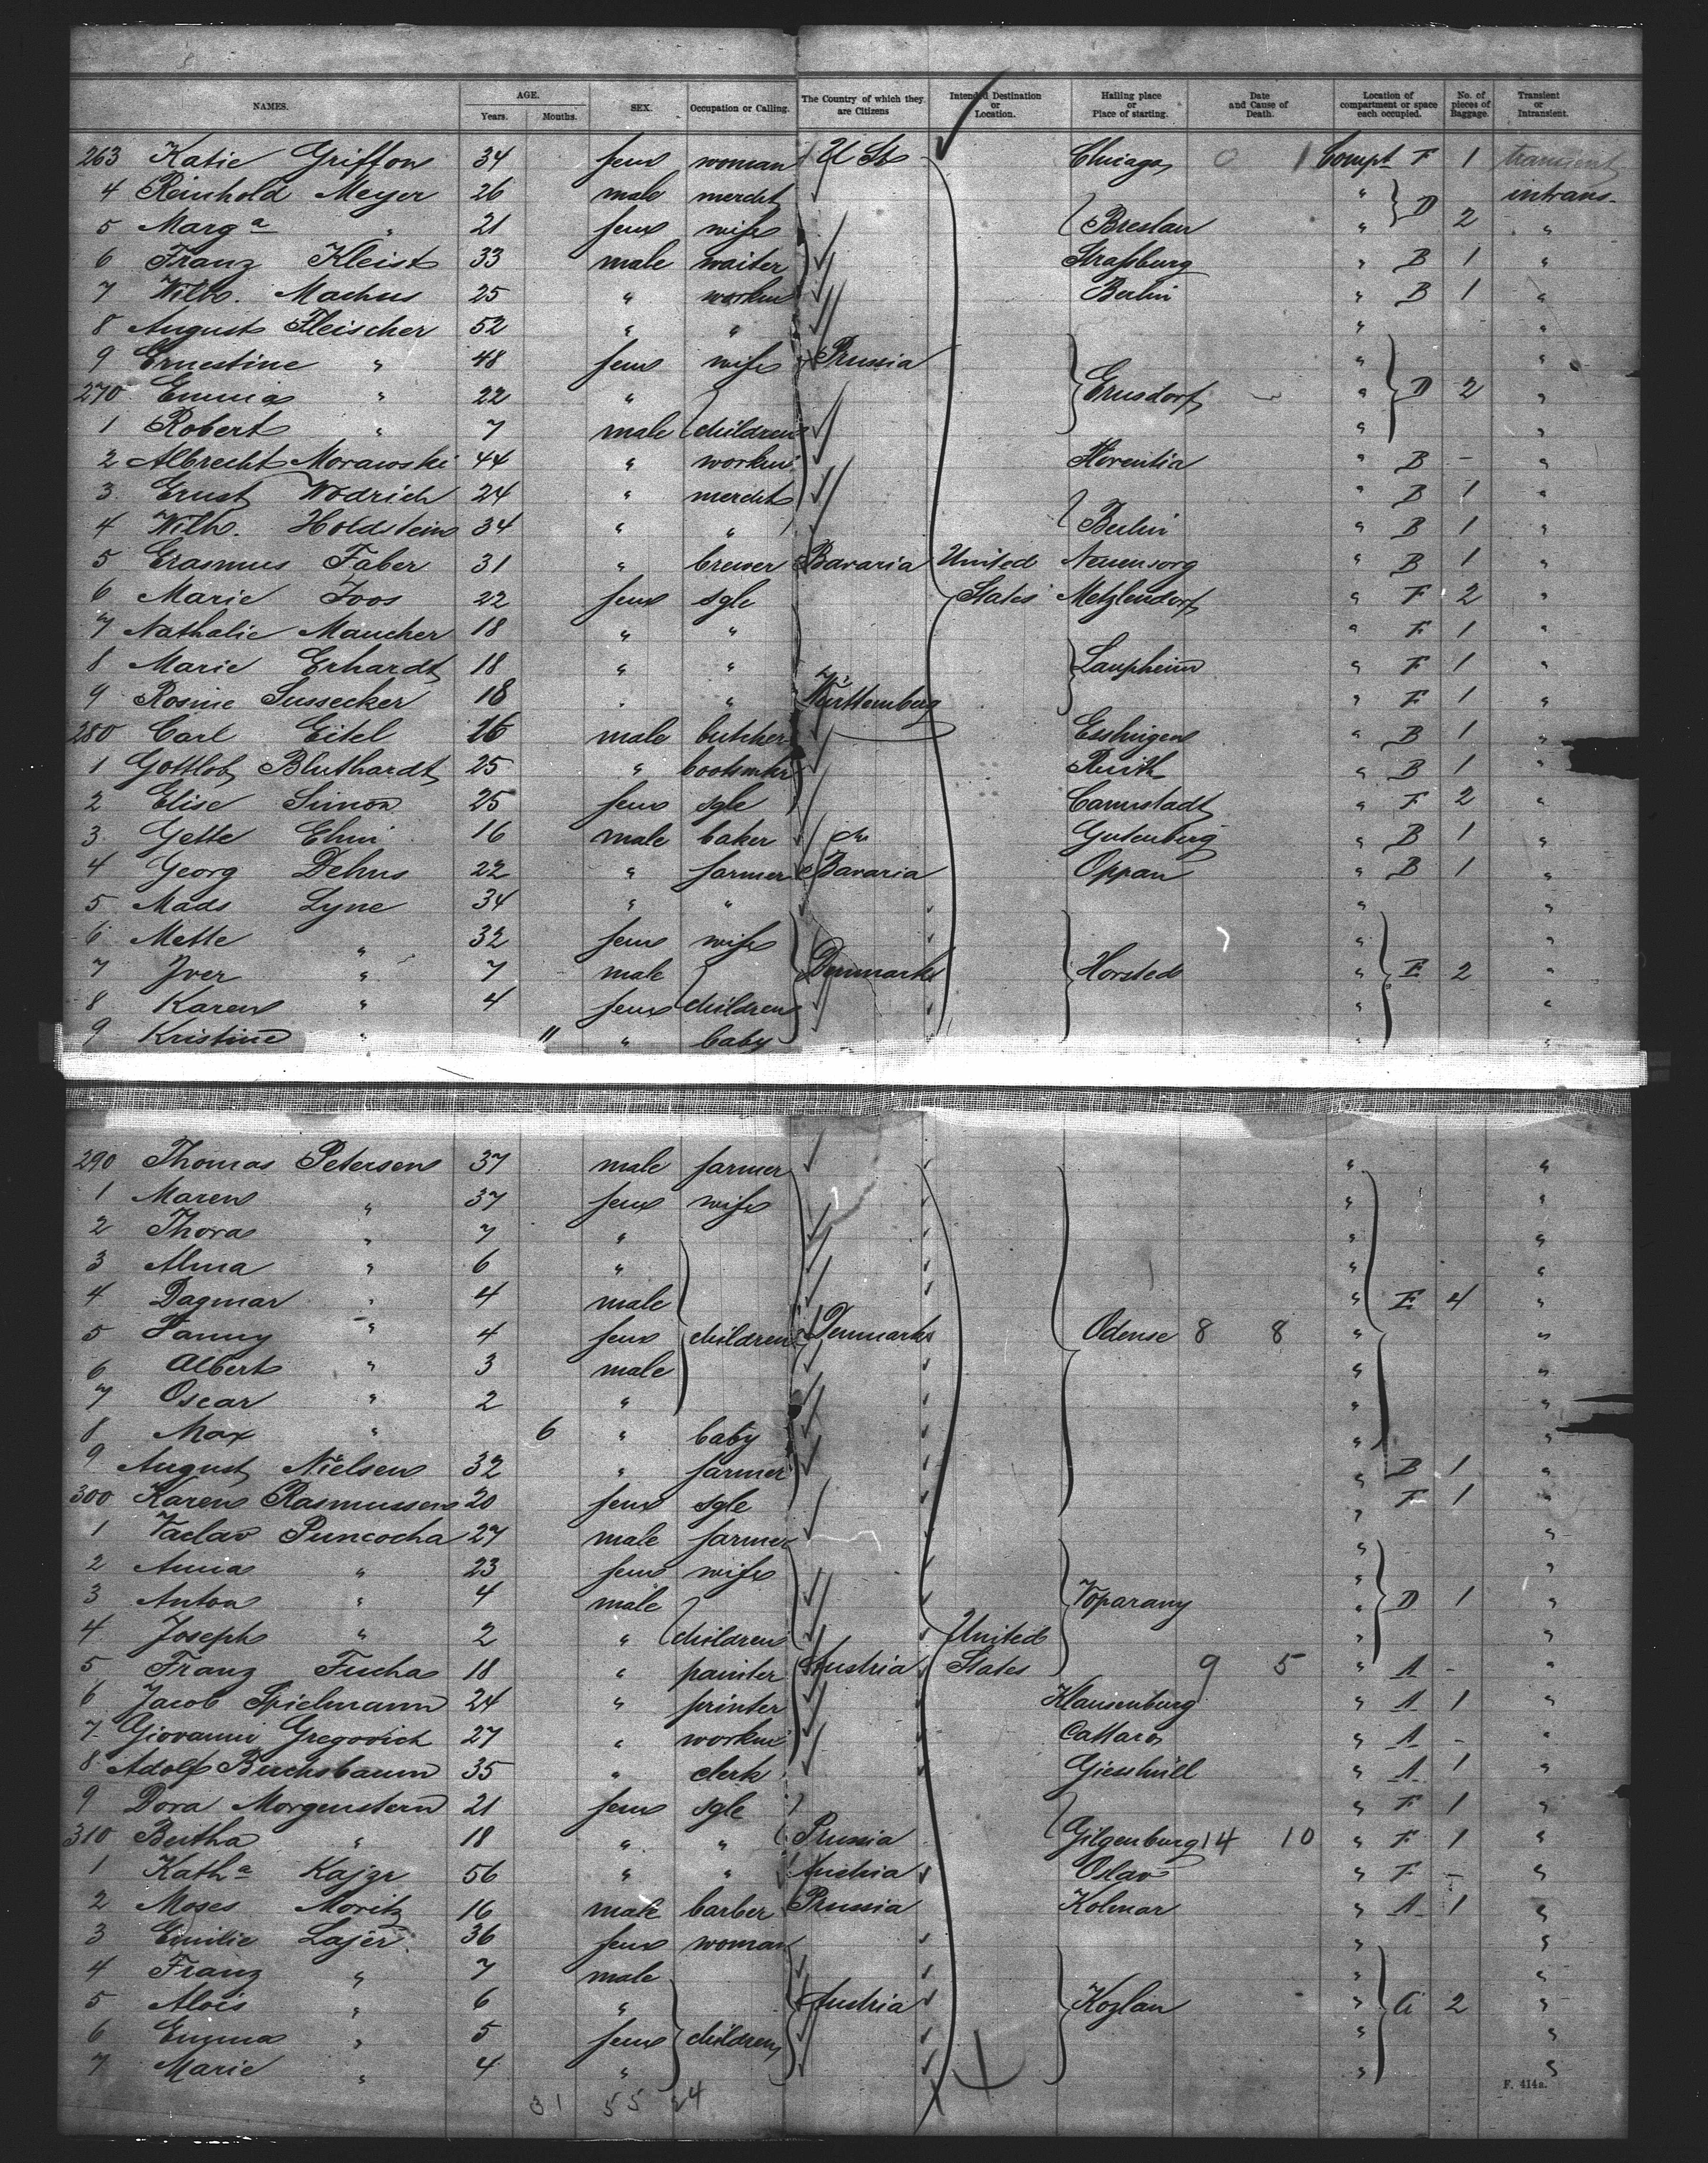 NAMES. AGE. Years. Months. SEX. Occupation or Calling. The Country of which they are Citizens Intended Destination or Location. Hailing place or Place of starting. Date and Cause of Death. Location of compartment or space each occupied. No. of pieces of Baggage. Transient or Intransient.
263 Katie Griffon 34 fem woman U St Chicago 0 1 Compt F 1 transient
4 Reinhold Meyer 26 male mercht " D intrans.
5 Marga " 21 fem wife Breslau " 2 "
6 Franz Kleist 33 male waiter Straßburg " B 1 "
7 Wilh. Machus 25 " workm Berlin " B 1 "
8 August Fleischer 52 " " " "
9 Ernestine " 48 fem wife Prussia " "
270 Emma " 22 " Ernsdorf " D 2 "
1 Robert " 7 male children " "
2 Albrecht Morawski 44 " workm Florentia " B - "
3 Ernst Wodrich 24 " mercht " B 1 "
4 Wilh. Holdstein 34 " " Berlin " B 1 "
5 Erasmus Faber 31 " brewer Bavaria United Neuensorg " B 1 "
6 Marie Joos 22 fem sgle States Metzlendorf " F 2 "
7 Nathalie Maucher 18 " " " F 1 "
8 Marie Erhardt 18 " " Laupheim " F 1 "
9 Rosine Sussecker 18 " " Württemberg " F 1 "
280 Carl Eitel 26 male butcher Esslingen " B 1 "
1 Gottlob Bluthardt 25 " bootmkr Ruith " B 1 "
2 Elise Simon 25 fem sgle Cannstadt " F 2 "
3 Gette Ehni 16 male baker Gutenberg " B 1 "
4 Georg Dehus 22 " farmer Bavaria Oppau " B 1 "
5 Mads Lyne 34 " " " "
6 Mette " 32 fem wife " "
7 Iver " 7 male Denmark Horsted " E 2 "
8 Karen " 4 fem children " "
9 Kristine " 11 " baby " "
290 Thomas Petersen 37 male farmer " "
1 Maren " 37 fem wife " "
2 Thora " 7 " " "
3 Alma " 6 " " "
4 Dagmar " 4 male " E 4 "
5 Fanny " 4 fem children Denmark Odense 8 8 " "
6 Albert " 3 male " "
7 Oscar " 2 " " "
8 Max " 6 " baby " "
9 August Nielsen 32 " farmer " B 1 "
300 Karen Rasmussen 20 fem sgle " F 1 "
1 Vaclav Puncocha 27 male farmer " "
2 Anna " 23 fem wife " "
3 Anton " 4 male Voparany " D 1 "
4 Joseph " 2 " children United " "
5 Franz Fucha 18 " painter Austria States 9 5 " A - "
6 Jacob Spielmann 24 " printer Klausenburg " A 1 "
7 Giovanni Gregovich 27 " workm Cattaro " A - "
8 Adolf Buchsbaum 35 " clerk Giesshüll " A 1 "
9 Dora Morgenstern 21 fem sgle " F 1 "
310 Bertha " 18 " " Prussia Gilgenburg 14 10 " F 1 "
1 Katha Kajzr 56 " " Austria Oslav " F - "
2 Moses Moritz 16 male barber Prussia Kolmar " A 1 "
3 Emilie Lajer 36 fem woman " "
4 Franz " 7 male " "
5 Alois " 6 " Austria Kozlan " G 2 "
6 Emma " 5 fem children " "
7 Marie " 4 " " "
31 55 24
F. 414a.